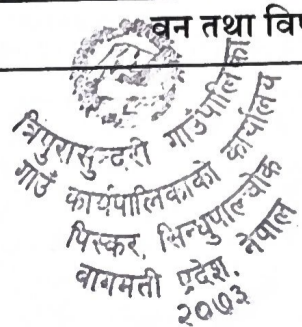 वन तथा वि
त्रिपुरासुन्दरी गाउँपालिका
गाउँ कार्यपालिकाको कार्यालय
पिस्कर, सिन्धुपाल्चोक
वागमती प्रदेश, नेपाल
२०७३